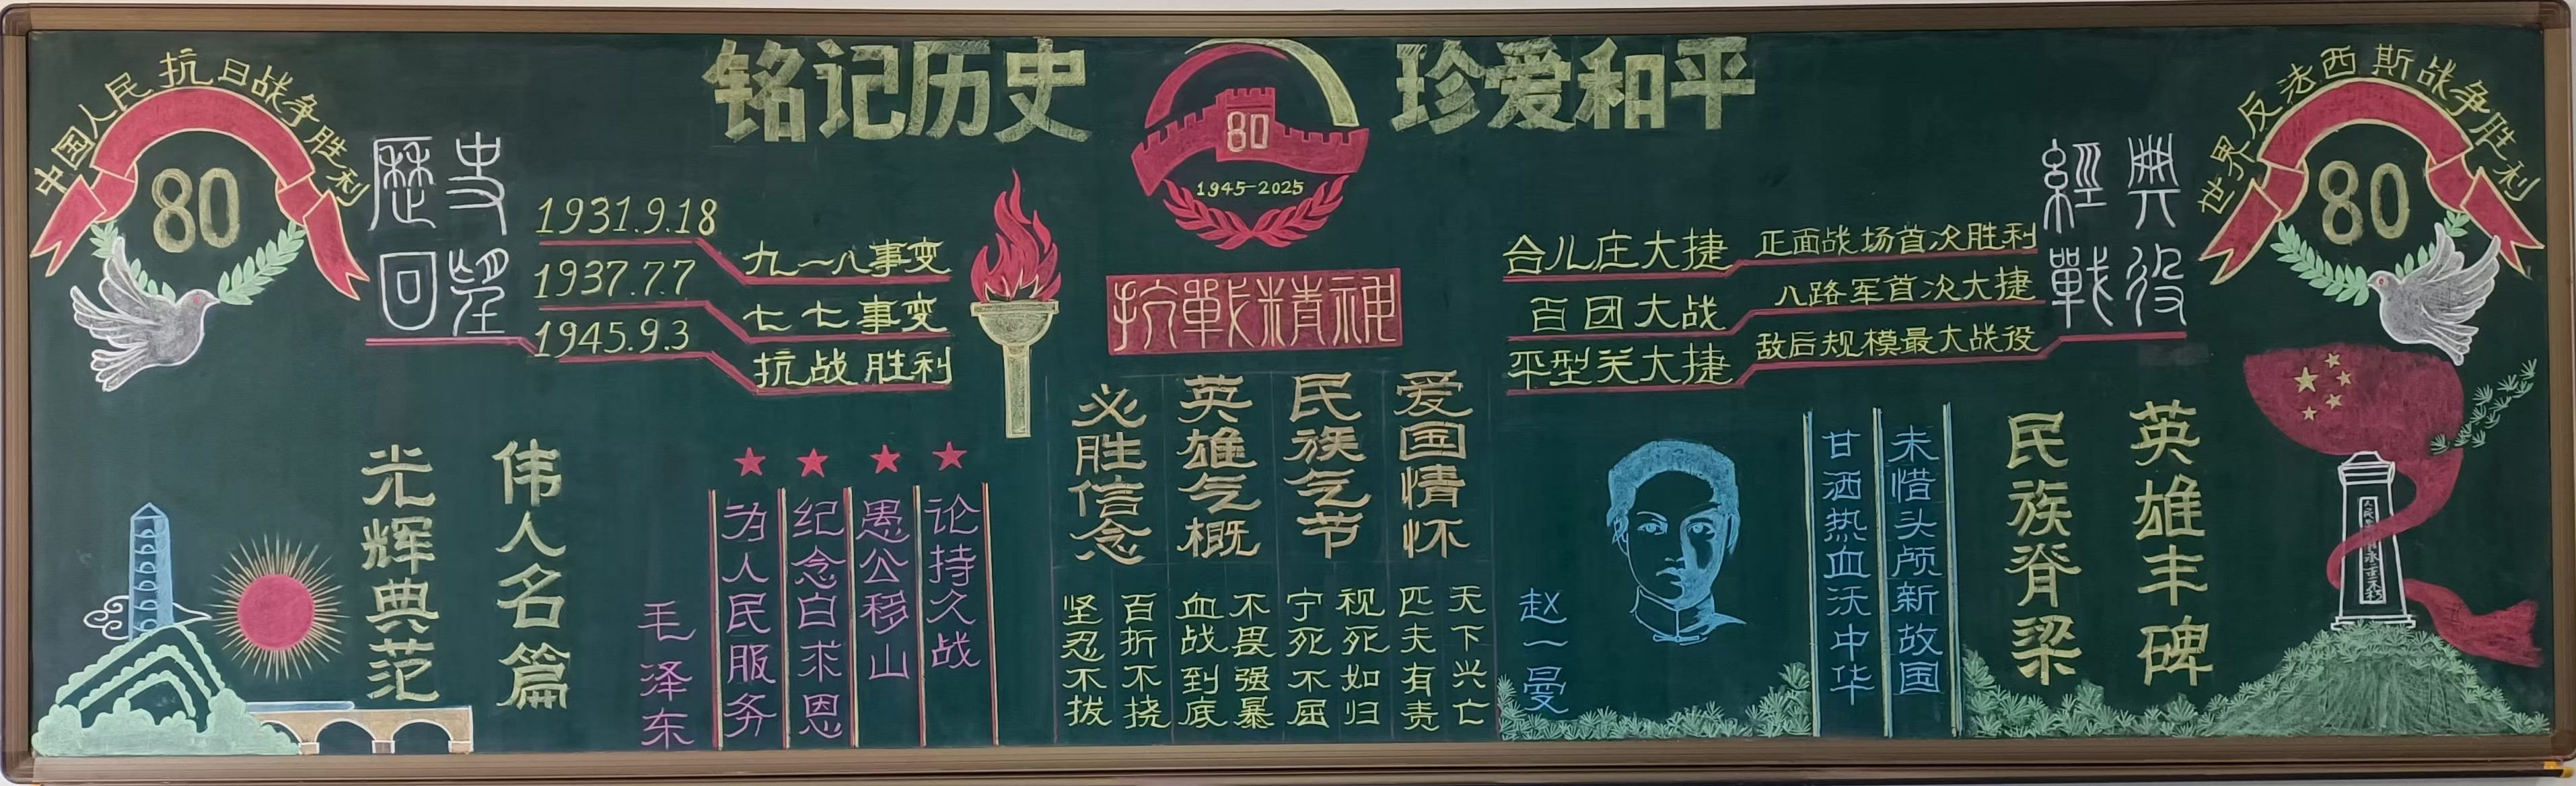 铭记历史
珍爱和平
80
1945-2025
中国人民抗日战争胜利
80
歷史
回望
1931.9.18
九一八事变
1937.7.7
七七事变
1945.9.3
抗战胜利
伟人名篇
光辉典范
论持久战
愚公移山
纪念白求恩
为人民服务
毛泽东
抗戰精神
爱国情怀
天下兴亡
匹夫有责
民族气节
视死如归
宁死不屈
英雄气概
不畏强暴
血战到底
必胜信念
百折不挠
坚忍不拔
世界反法西斯战争胜利
80
經典
戰役
台儿庄大捷
正面战场首次胜利
百团大战
八路军首次大捷
平型关大捷
敌后规模最大战役
英雄丰碑
民族脊梁
未惜头颅新故国
甘洒热血沃中华
赵一曼